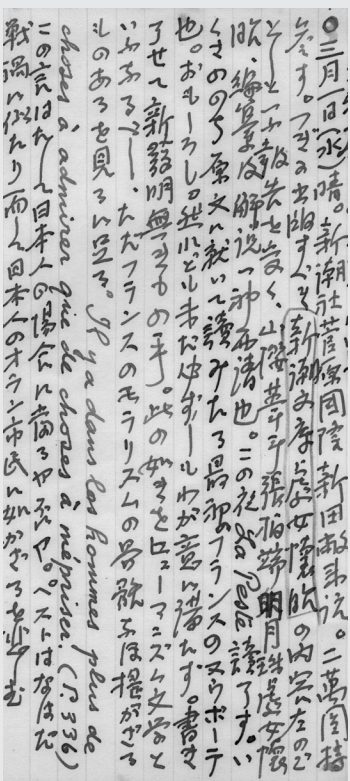 ○三月一日(水)晴。新潮社菅原国隆新田敞来訪。二萬圓持
参す。つぎに出版すべき新潮文庫處女懐胎の内容左のご
としといふ報告を受く、山櫻葦手張柏端明月珠處女懐
胎、編纂及解説神西清也。この夜La Peste讀了す。い
くさののち原文に就いて讀みたる最初のフランスの
也。おもしろし。然れども未だ必ずしもわが意に満たず。書き
了せて新發明無きもの乎。此の如きをヒューマニズム文学と
いふなるべし、ただフランスのモラリスムの骨骸なほ揺がざる
ものあるを見るに足る。Il y a dans les hommes plus de
choses à admirer que de choses à mépriser. (P.336)
この言はたして日本人の場合に當るや否や。ペストはなはだ
戦禍に似たり而して日本人のオラン市民に如かざること